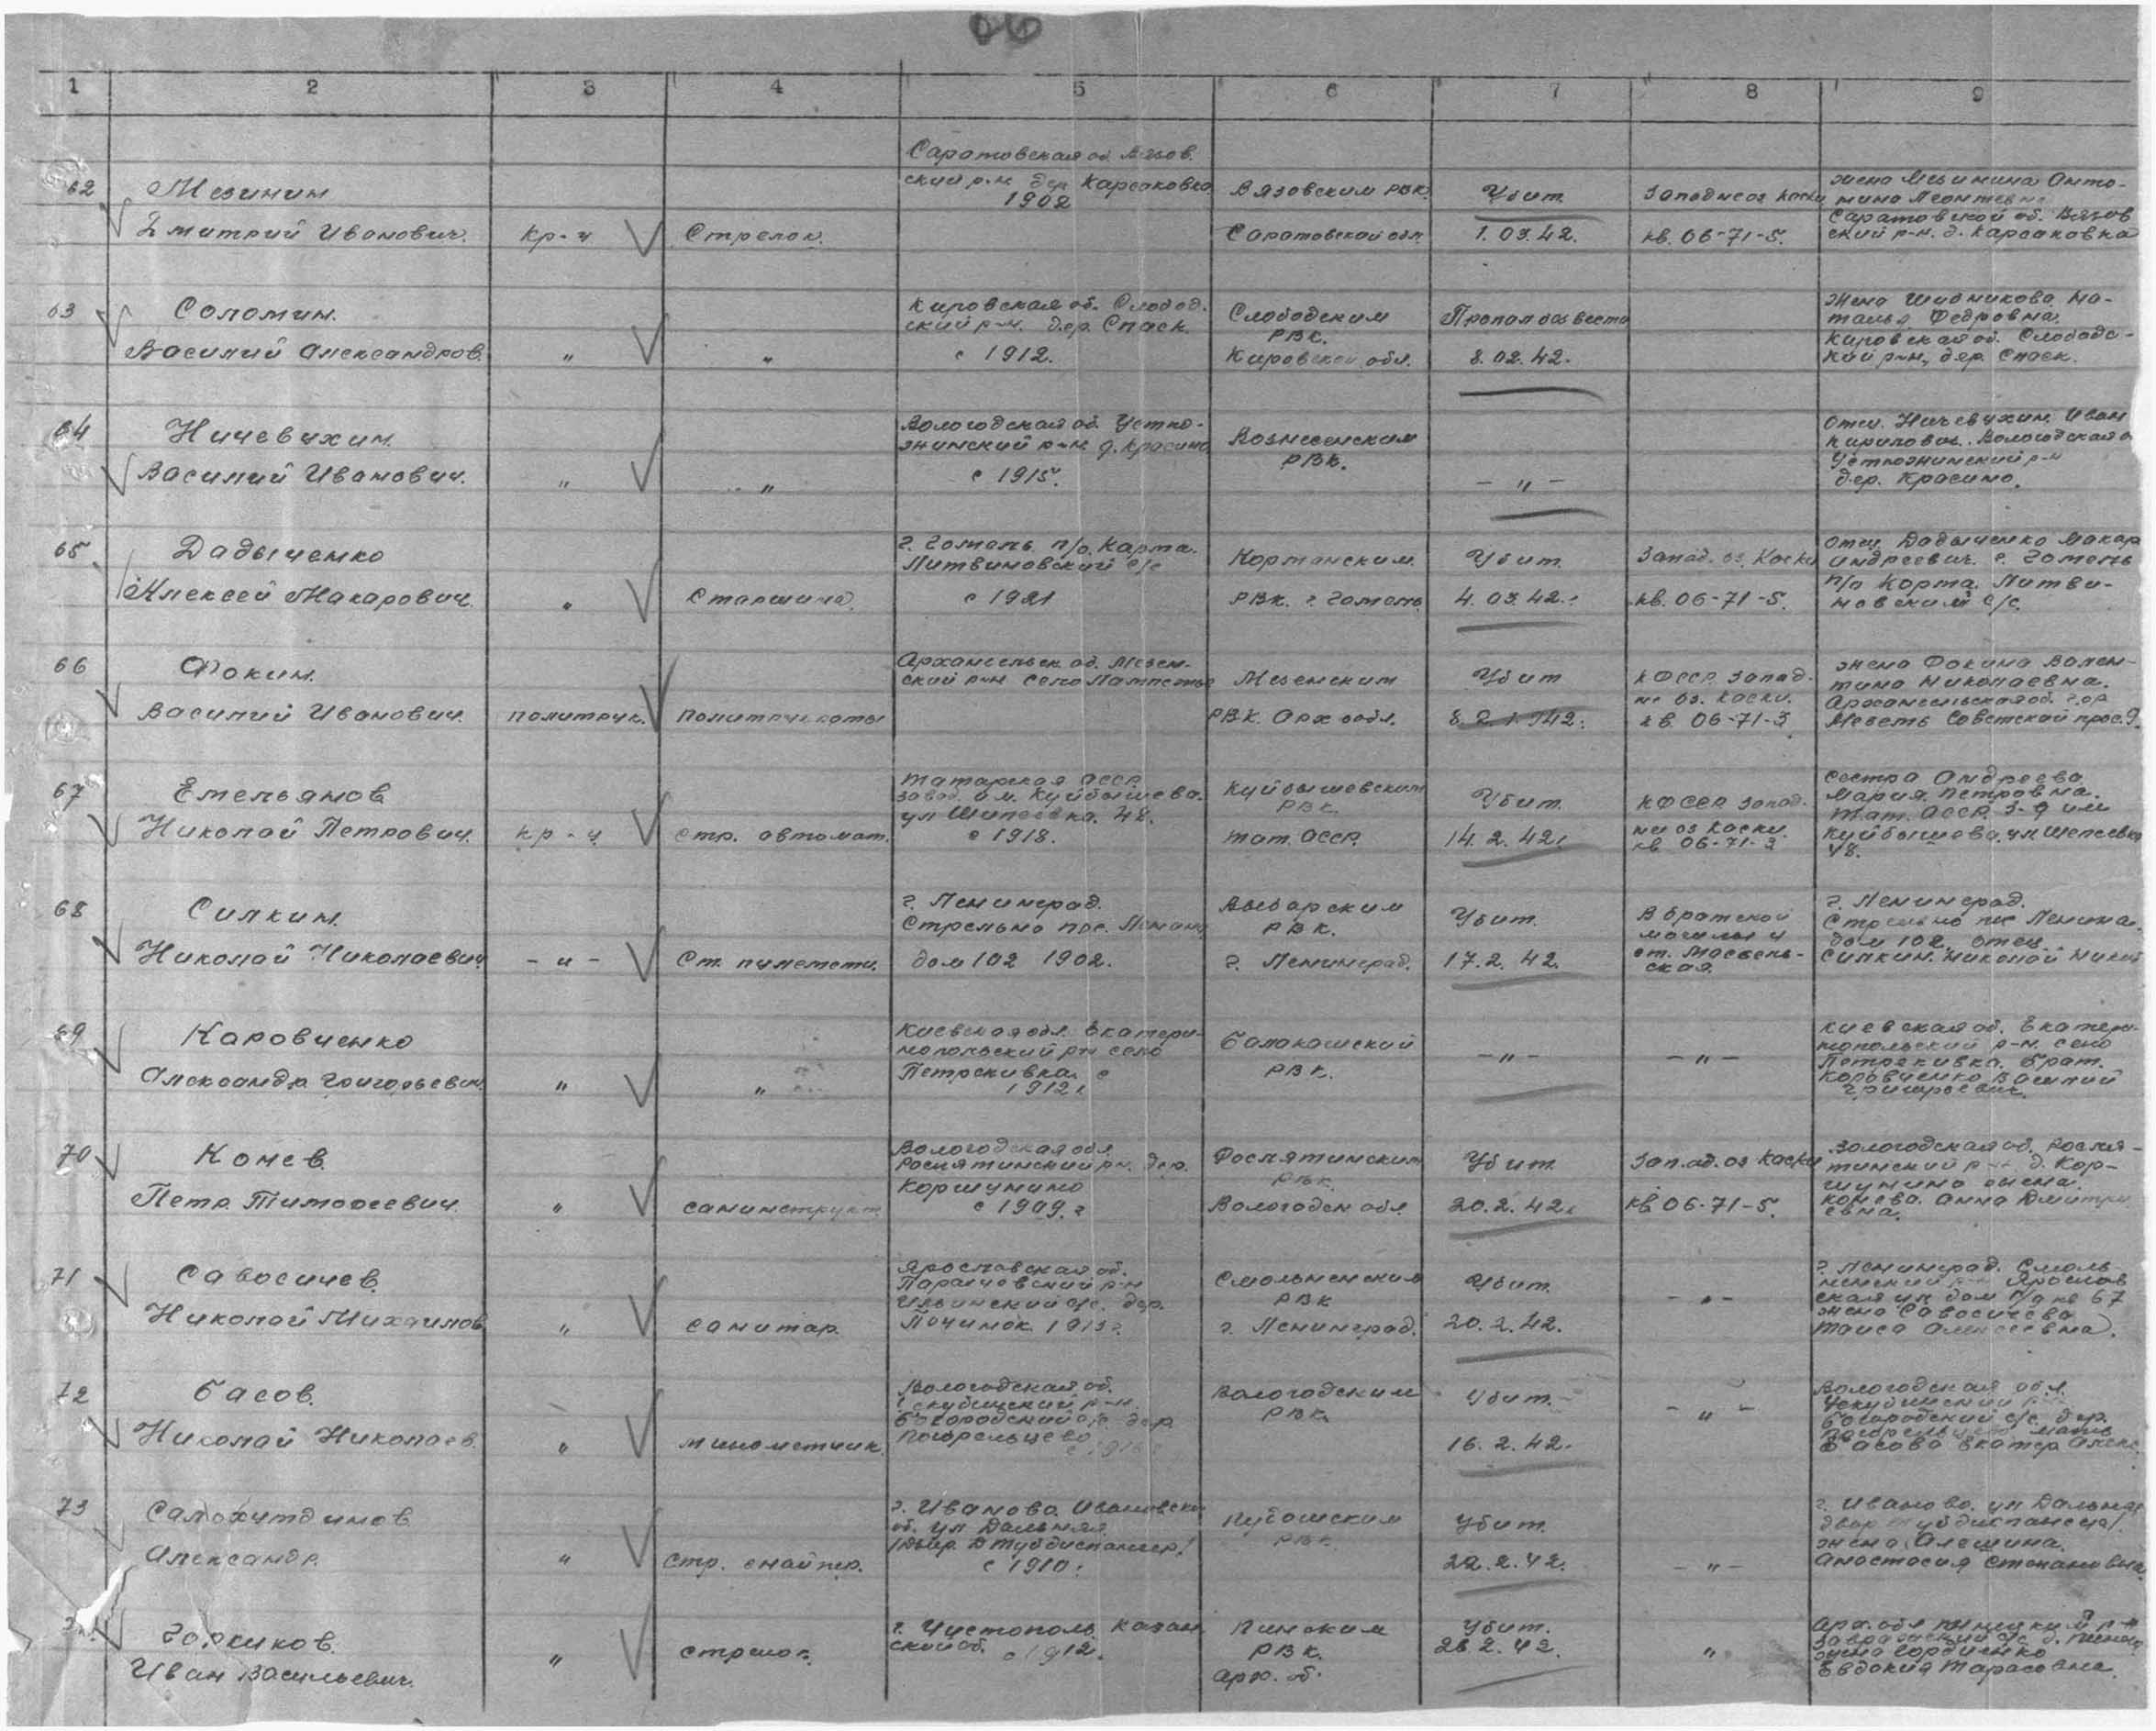 66
1 2 3 4 5 6 7 8 9
62
Мезинин
Дмитрий Иванович.
кр-ц
Стрелок.
Саратовская об. Вязов.
ский р-н дер Карсаковка
1902
Вязовским РВК
Саратовской обл.
Убит.
1.03.42.
Западнее оз Каски
кв. 06-71-5.
жена Мезинина Анто-
нина Леонтевна
Саратовской об. Вязов
ский р-н. д. Карсаковка
63
Соломин.
Василий Александров.
"
"
Кировская об. Слобод.
ский р-н. дер. Спаск.
с 1912.
Слободским
РВК.
Кировской обл.
Пропал без вести
8.02.42.
жена Шубникова На-
талья Федровна.
Кировская об. Слободс-
кий р-н, дер. Спаск.
64
Ничевухин.
Василий Иванович.
"
"
Вологодская об. Устю-
жнинский р-н. д. Красино
с 1915.
Вознесенским
РВК.
- " -
Отец. Ничевухин. Иван
Кирилович. Вологодская о
Устюжнинский р-н
дер. Красино.
65
Дадыченко
Алексей Макарович.
"
Старшина.
г. Гомель п/о. Карта.
Литвиновский с/с
с 1921
Кортанским.
РВК. г. Гомель
Убит.
4.03.42.
Запад. оз. Каски
кв. 06-71-5.
Отец Дадыченко Макар
Андреевич. г. Гомель
п/о Корта. Литви-
новский с/с.
66
Фокин.
Василий Иванович.
политрук.
Политрук роты
Архангельск. об. Мезен-
ский р-н село
Мезенским
РВК. Арх. обл.
Убит
КФССР. Запад-
не оз. Каски.
кв. 06-71-3
жена Фокина Вален-
тина Николаевна.
Архангельская об. гор
Мезень Советский прос. 9.
67
Емельянов
Николай Петрович.
кр-ц
стр. автомат.
Татарская АССР.
завод им. Куйбышева.
ул Шипеевка. 48.
с 1918.
Куйбышевским
РВК.
Тат. АССР.
Убит.
14.2.42.
КФССР Запад-
не оз Каски.
кв 06-71-3
Сестра Андреева.
Мария Петровна.
Тат. АССР. З-д им
Куйбышева. ул Шепеевка
48.
68
Силкин.
Николай Николаевич
- " -
Ст. пулеметч.
г. Ленинград.
Стрельно пос. Ленина
дом 102 1902.
Выборским
РВК.
г. Ленинград.
Убит.
17.2.42.
В братской
могилы у
ст. Масель-
ская.
г. Ленинград.
Стрельно пос Ленина.
дом 102. Отец.
Силкин. Николай Никол
69
Каровченко
Александр Григорьевич.
"
"
Киевская обл. Екатери-
нопольский р-н село
Петроскивка с
1912 г.
Балакошский
РВК.
- " -
- " -
Киевская об. Екатери-
нопольский р-н. село
Петроскивка. Брат.
Коровченко Василий
Григорьевич.
70
Конев.
Петр Тимофеевич.
"
санинструкт.
Вологодская обл
Рослятинский р-н. дер.
Коршунино
с 1909. г
Рослятинским
РВК.
Вологодск обл
Убит.
20.2.42.
Запад. оз Каски
кв 06-71-5.
Вологодская об. Росля-
тинский р-н д. Кор-
шунино жена.
Конева. Анна Дмитри
евна.
71
Савосичев.
Николай Михаилов
"
санитар.
Ярославская об.
р-н
Ильинский с/с. дер.
Починок.
Смольненским
РВК
г. Ленинград.
Убит.
20.2.42.
- " -
г. Ленинград. Смоль-
ненский р-н Ярослав
ская ул дом кв 67
жена Савосичева
Таиса Алексеевна.
72
Басов.
Николай Николаев.
"
минометчик.
Вологодская об.
р-н.
Богородский с/с дер
Погорельцево
Вологодским
РВК.
Убит.
16.2.42.
- " -
Вологодская обл.
Богородский с/с дер.
мать
Басова Екатер Алекс.
73
Салохутдинов
Александр.
"
Стр. снайпер.
г. Иваново. Ивановской
об. ул Дальняя
с 1910.
РВК.
Убит.
22.2.42.
- " -
г. Иваново. ул Дальняя
жена Алешина.
Анастасия Степановна.
Горшков.
Иван Васильевич.
"
стрелок.
г. Чистополь Казан
ской об. с 1912.
РВК.
Арх. об.
Убит.
28.2.42.
"
Арх. обл
Евдокия Тарасовна.